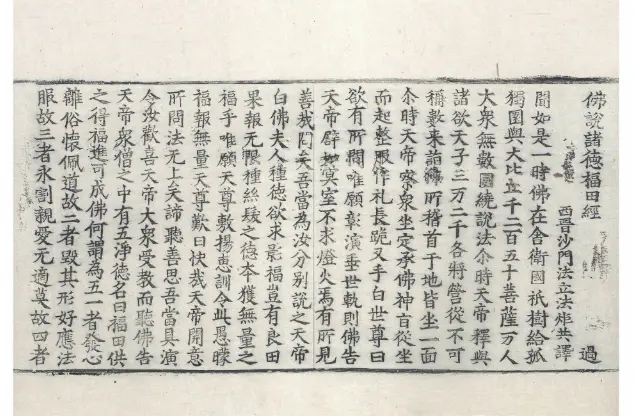 佛說諸德福田經
西晉沙門法立法炬共譯
過
聞如是一時佛在舍衛國祇樹給孤
獨園與大比丘千二百五十菩薩万人
大衆無數圍繞說法尒時天帝釋與
諸欲天子三万二千各將營從不可
稱數来詣佛所稽首于地皆坐一面
尒時天帝察衆坐定承佛神旨從坐
而起整服作礼長跪叉手白世尊曰
欲有所問唯願彰演垂世軌則佛告
天帝譬如冥室不求燈火焉有所見
善哉問矣吾當為汝分別說之天帝
白佛夫人種德欲求影福豈有良田
果報无限種絲髮之德本獲無量之
福乎唯願天尊敷揚惠訓令此愚矇
福報無量天尊歎曰快哉天帝開意
所問法无上矣諦聽善思吾當具演
令汝歡喜天帝大衆受教而聽佛告
天帝衆僧之中有五淨德名曰福田供
之得福進可成佛何謂為五一者發心
離俗懷佩道故二者毀其形好應法
服故三者永割親愛无適莫故四者